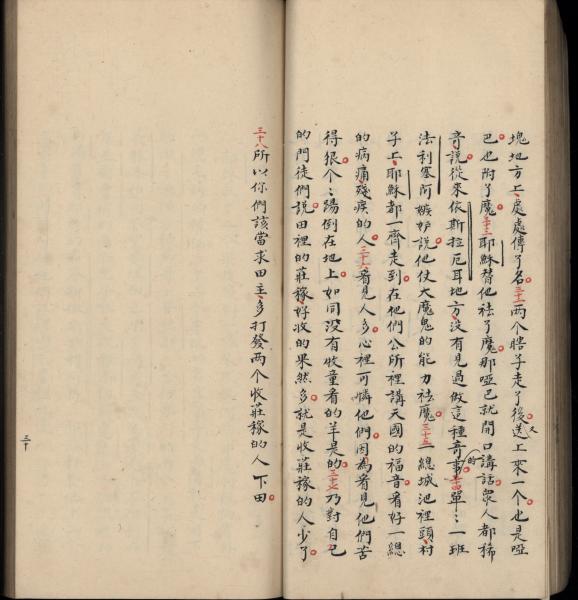 塊地方上處處傳了名三十二兩个瞎子走了後又送上來一个也是啞
巴也附了魔三十三耶穌替他祛了魔那啞巴就開口講話眾人都稀
奇說從來依斯拉厄耳地方沒有見過做這種奇事的三十四單單一班
法利塞阿嫉妒說他仗大魔鬼的能力祛魔三十五一總城池裡頭村
子上耶穌都一齊走到在他們公所裡講天國的福音看好一總
的病痛殘疾的人三十六看見人多心裡可憐他們因為看見他們苦
得狠个个踢倒在地上如同沒有收童看的羊是的三十七乃對自己
的門徒們說田裡的莊稼好收的果然多就是收莊稼的人少了
三十八所以你們該當求田主多打發兩个收莊稼的人下田
三十